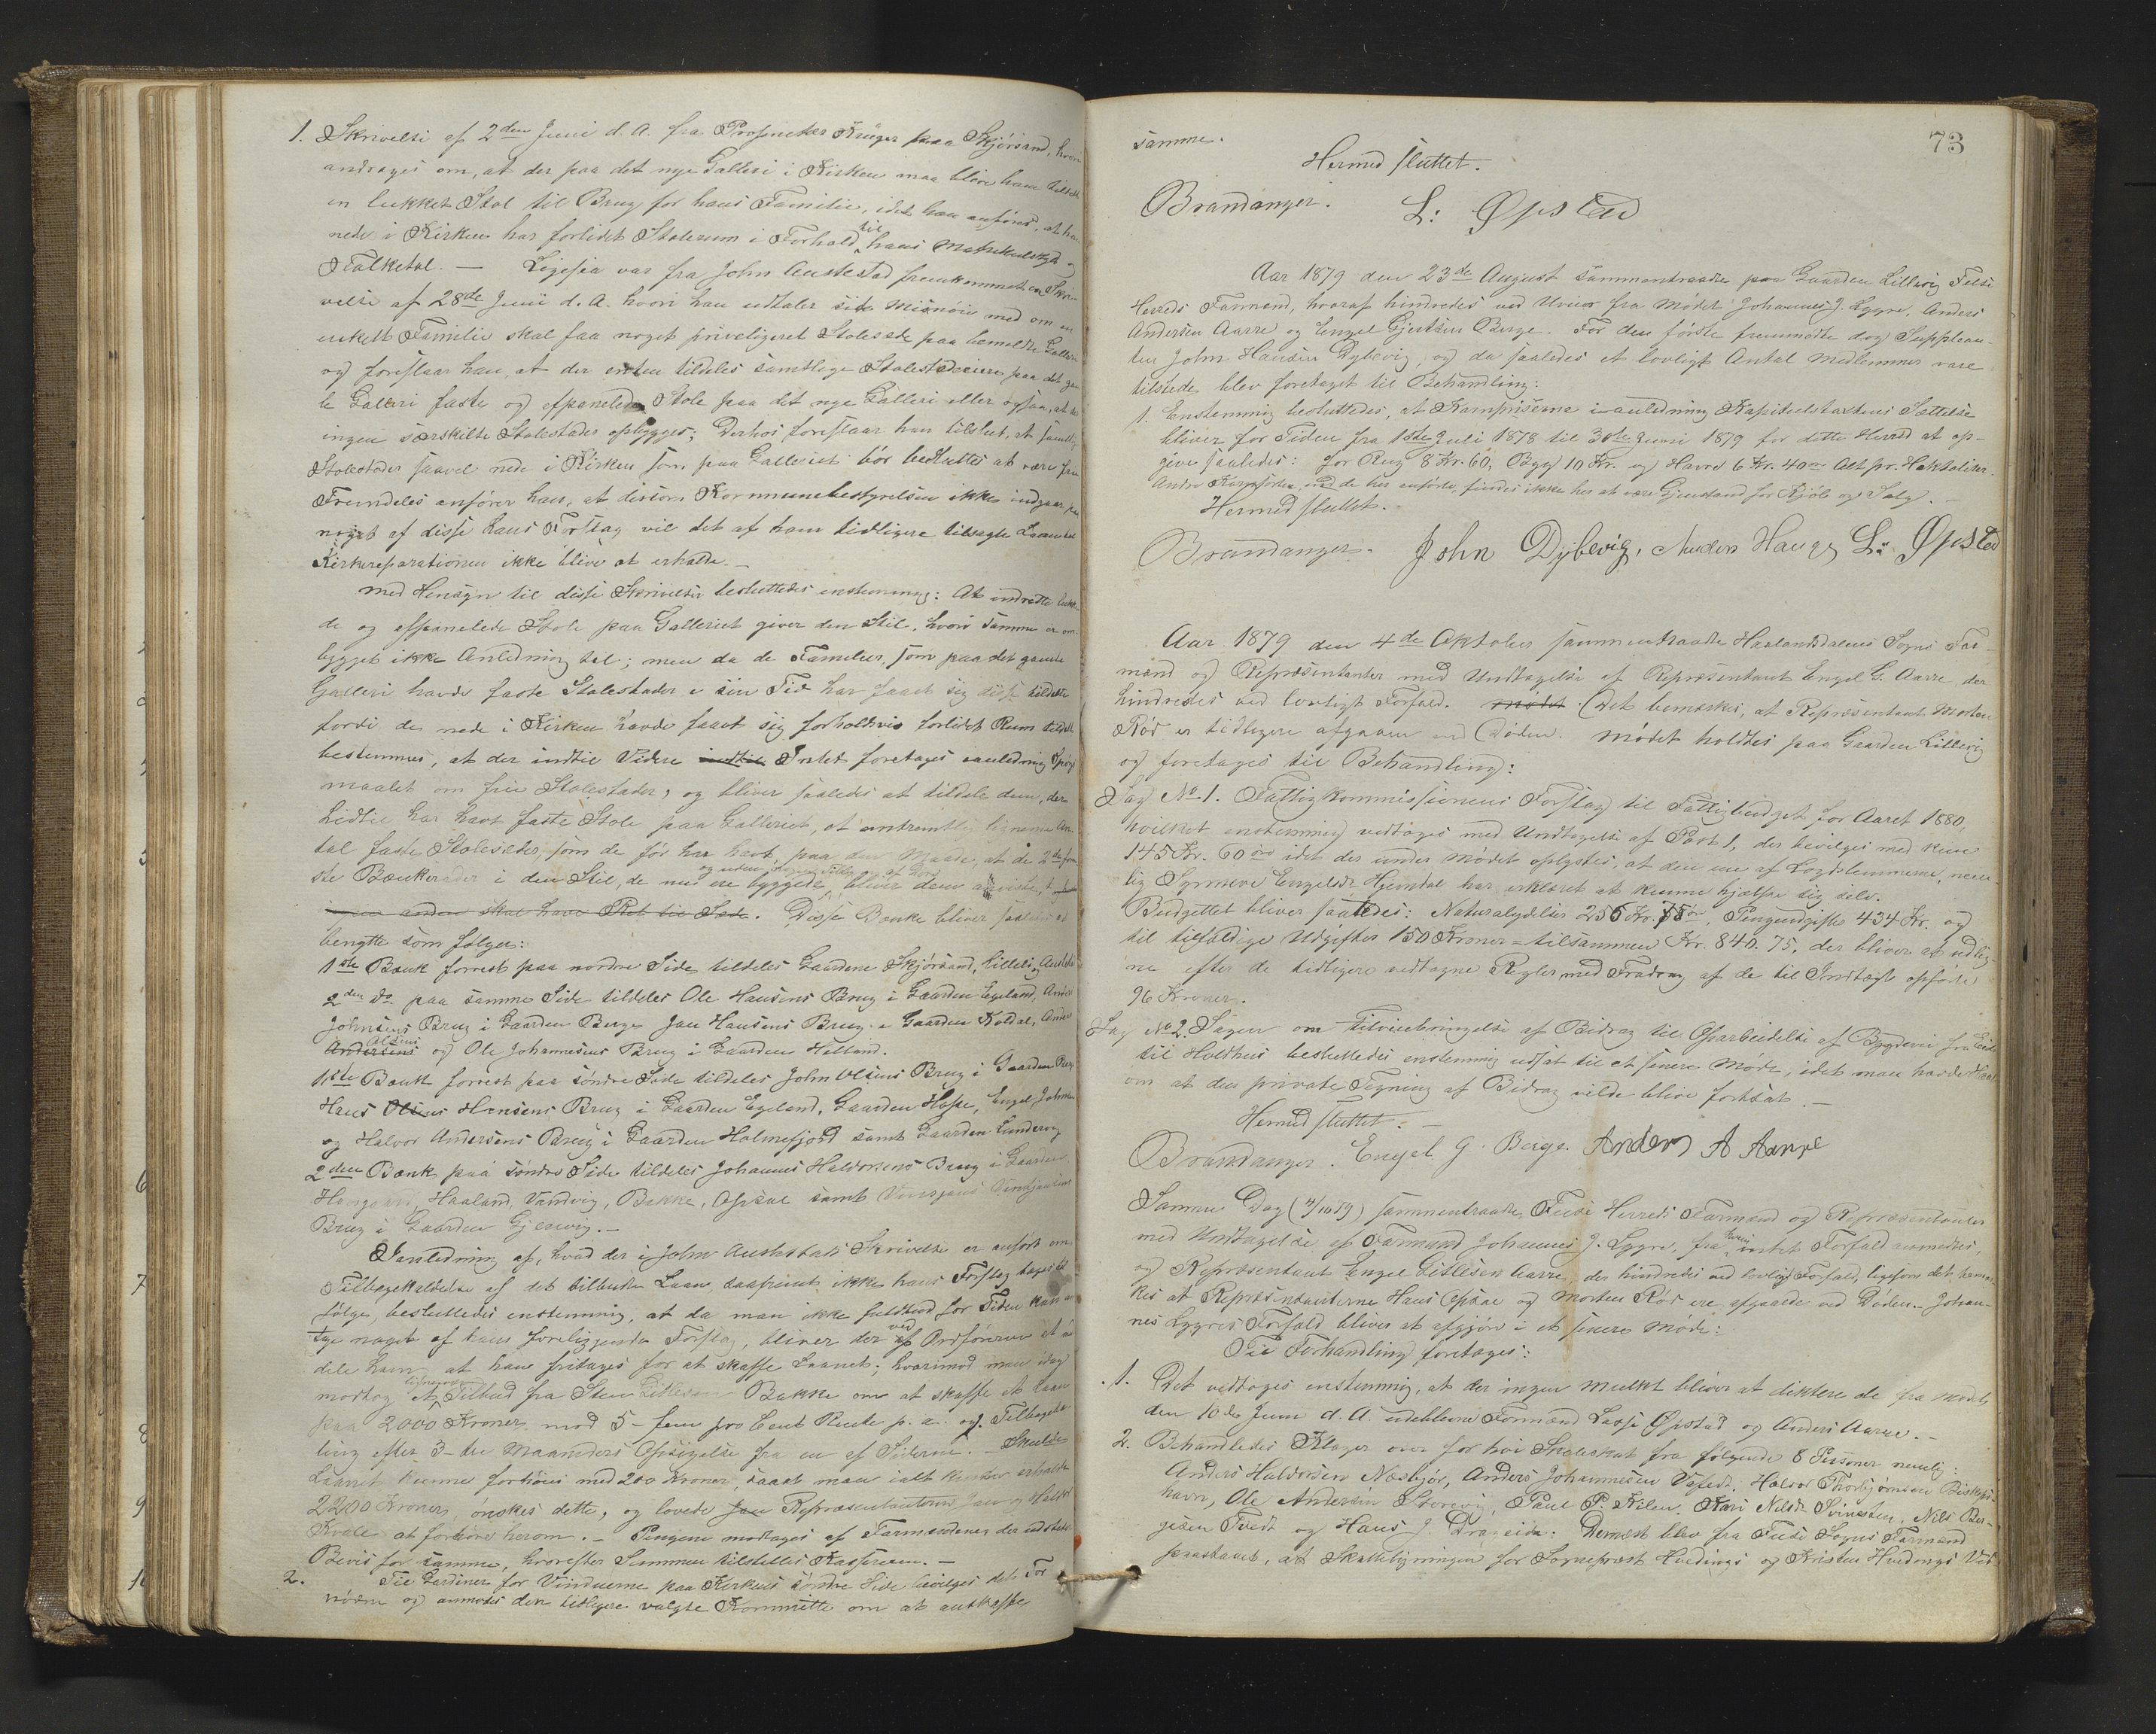 1. Skrivelse af 2den Juni d. A. fra Proprietær Krüger paa Skjörsand, hvori
andrages om, at der paa det nye Galleri i Kirken maa blive ham tildelt
en lukket Stol til Brug for hans Familie, idet han anförer, at han
nede i Kirken har forlidet Stolerum i Forhold til hans Matrikulskyld og
Folketal. — Ligesaa var fra John Austestad fremkommet en Skri-
velse af 28de Juni d. A. hvori han udtaler sit Misnöie med om en
enkelt Familie skal faa noget priveligeret Stolesæde paa bemeldte Galleri
og foreslaar han, at der enten tildeles samtlige Stolestadeeiere paa det gam-
le Galleri faste og afpanelede Stole paa det nye Galleri eller ogsaa, at
ingen særskilte Stolestader opbygges; Derhos foreslaar han tilslut, at samtlige
Stolestader saavel nede i Kirken som paa Galleriet bör besluttes at være frie
Fremdeles anförer han, at dersom Kommunebestyrelsen ikke indgaar paa
noget af disse hans Forslag vil det af ham tidligere tilsagte Laan til
Kirkereparationen ikke blive at erholde. —
Med Hensyn til disse Skrivelser besluttedes enstemmig: At indrette lukke-
de og afpanelede Stole paa Galleriet giver den Stil, hvori samme er om-
bygget ikke Anledning til; men da de Familier, som paa det gamle
Galleri havde faste Stolestader i sin Tid har faaet sig disse tildelte
fordi de nede i Kirken havde faaet sig forholdsvis forlidet Rum tildelt
bestemmes, at der indtil Videre indtil Intet foretages ianledning Spörgs-
maalet om frie Stolestader, og bliver saaledes at tildele dem, der
hidtil har havt faste Stole paa Galleriet, et omtrentlig lignende An-
tal faste Stolesæder, som de för har havt, paa den Maade, at de 2de for-
ste Bænkerader i den Stil, de nu ere byggede, bliver dem anviste,
anden skal have Ret til Sæde. Disse Bænke bliver saaledes at
benytte som fölger:
1ste Bænk forrest paa nordre Side tildeles Gaardene Skjörsand, Lilletvig, Austestad
2den Do paa samme Side tildeles Ole Hansens Brug i Gaarden Egeland, Anders
Johnsens Brug i Gaarden Berge Jan Hansens Brug i Gaarden Koldal, Anders
Andersens Olsens og Ole Johannesens Brug i Gaarden Helland.
1ste Bænk forrest paa söndre Side tildeles John Olsens Brug i Gaarden Berge
Hans Olsens Hansens Brug i Gaarden Egeland, Gaarden Hope, Engel Johnsens
og Halvor Andersens Brug i Gaarden Holmefjord samt Gaarden Lundervig
2den Bænk paa söndre Side tildeles Johannes Haldorsens Brug i Gaarden
Haaland, Vandvig, Bakke, Opsal samt
Brug i Gaarden Gjerevig. —
Ianledning af, hvad der i John Austestads Skrivelse er anfört om
Tilbagekaldelse af det tilbudte Laan, saafremt ikke hans Forslag toges til-
fölge, besluttedes enstemmig, at da man ikke for Tiden kan an-
tage noget af hans foreliggende Forslag, bliver der ved Ordföreren at til-
dele ham, at han fritages for at skaffe Laanet; hvorimod man idag
modtog et Tilbud fra Sten Gitlesen Bakke om at skaffe et Laan
paa 2000 Kroner mod 5 – fem pro Cent Rente p. a. og Tilbagebeta-
ling efter 3 – tre Maaneders Opsigelse fra en af Siderne. — Skulde
Laanet kunne forhöies med 200 Kroner, saaat man ialt kunde erholde
2200 Kroner, önskes dette, og lovede Jan Repræsentanterne Jan og Haldor
Kvale at forhöre herom. — Pengene modtages af Formændene der udsteder
Bevis for samme, hvorefter Summen tilstilles Kassereren. —
2. Til Gardiner for Vinduerne paa Kirkens söndre Side bevilges det For-
nödne og anmodes den tidligere valgte Kommitte om at anskaffe
73
samme.
Hermed sluttet.
Brandanger. L: Øpsted
Aar 1879 den 23de August sammentraadte paa Gaarden Lillevig Fuse
Herreds Formænd, hvoraf hindredes ved Uveir fra Mödet Johannes J. Lygre, Anders
Andersen Aarre og Engel Gjertsen Berge. For den förste fremmödte dog Supplean-
ten John Hansen Dybevig, og da saaledes et lovligt Antal Medlemmer vare
tilstede, blev foretaget til Behandling:
1. Enstemmig besluttedes, at Kornpriserne i anledning Kapitelstaxtens Sættelse
bliver for Tiden fra 1ste Juli 1878 til 30te Juni 1879 for dette Herred at op-
give saaledes: for Rug 8 Kr. 60, Byg 10 Kr. og Havre 6 Kr. 40 Öre Alt pr. Hektoliter.
Andre Kornsorter, end de her anförte, findes ikke her at være Gjenstand for Kjöb og Salg. —
Hermed sluttet.
Brandanger. John Dybevig, Anders Hauge L: Øpsted
Aar 1879 den 4de Oktober sammentraadte Haalandsdalens Sogns For-
mænd og Repræsentanter med Undtagelse af Repræsentant Engel G. Aarre, der
hindredes ved lovligt Forfald. Mödet (Det bemærkes, at Repræsentant Morten
Röd er tidligere afgaaen ved Döden. Mödet holdtes paa Gaarden Lillevig
og foretages til Behandling:
Sag No 1. Fattigkommissionens Forslag til Fattigbudget for Aaret 1880,
hvilket enstemmig vedtoges med Undtagelse af Post 1, der bevilges med kun
145 Kr. 60 öre idet der under Mödet oplystes, at den ene af Lægdslemmerne, neme-
lig Synneve Engelsdr Hjemdal har erklæret at kunne hjælpe sig selv.
Budgettet bliver saaledes: Naturalydelser 256 Kr. 75 öre, Pengeudgifter 434 Kr. og
til tilfældige Udgifter 150 Kroner = tilsammen Kr. 840. 75, der bliver at udlig-
ne efter de tidligere vedtagne Regler med Fradrag af de til Indtægt opförte
96 Kroner.
Sag No 2. Sagen om Tilveiebringelse af Bidrag til Oparbeidelse af Bygdevei fra Eide
til Holdhus besluttedes enstemmig udsat til et senere Möde, idet man havde Haab
om at den private Tegning af Bidrag vilde blive fortsat. —
Hermed sluttet. —
Brandanger. Engel G. Berge. Anders A Aarre
Samme Dag (4/10 79) sammentraadte Fuse Herreds Formænd og Repræsentanter
med Undtagelse af Formand Johannes J. Lygre, fra hvem intet Forfald anmeldtes,
og Repræsentant Engel Gitlesen Aarre, der hindredes ved lovligt Forfald, ligesom det bemær-
kes at Repræsentanterne Hans Opsal og Morten Röd ere afgaaede ved Döden. Johan-
nes Lygres Forfald bliver at afgjöre i et senere Möde:
Til Forhandling foretages:
1. Det vedtoges enstemmig, at der ingen Mulkt bliver at diktere de fra Mödet
den 10de Juni d. A. udeblevne Formænd Lasse Øpstad og Anders Aarre. —
2. Behandledes Klager over for höi Skoleskat fra fölgende 8 Personer nemlig:
Anders Haldorsen Næsbjör, Anders Johannesen Halvor Thorbjörnsen Biskops-
havn, Ole Andersen Storevig, Paul P. Kilen, Kari Nilsdr Svinesten, Nils Bör-
gesen Tvedt og Hans J. Drageide: Dernæst blev fra Fuse Sogns Formænd
paastaaet, at Skatteligningen for Sogneprest Hvidings og Kristen Hvidings Ved-